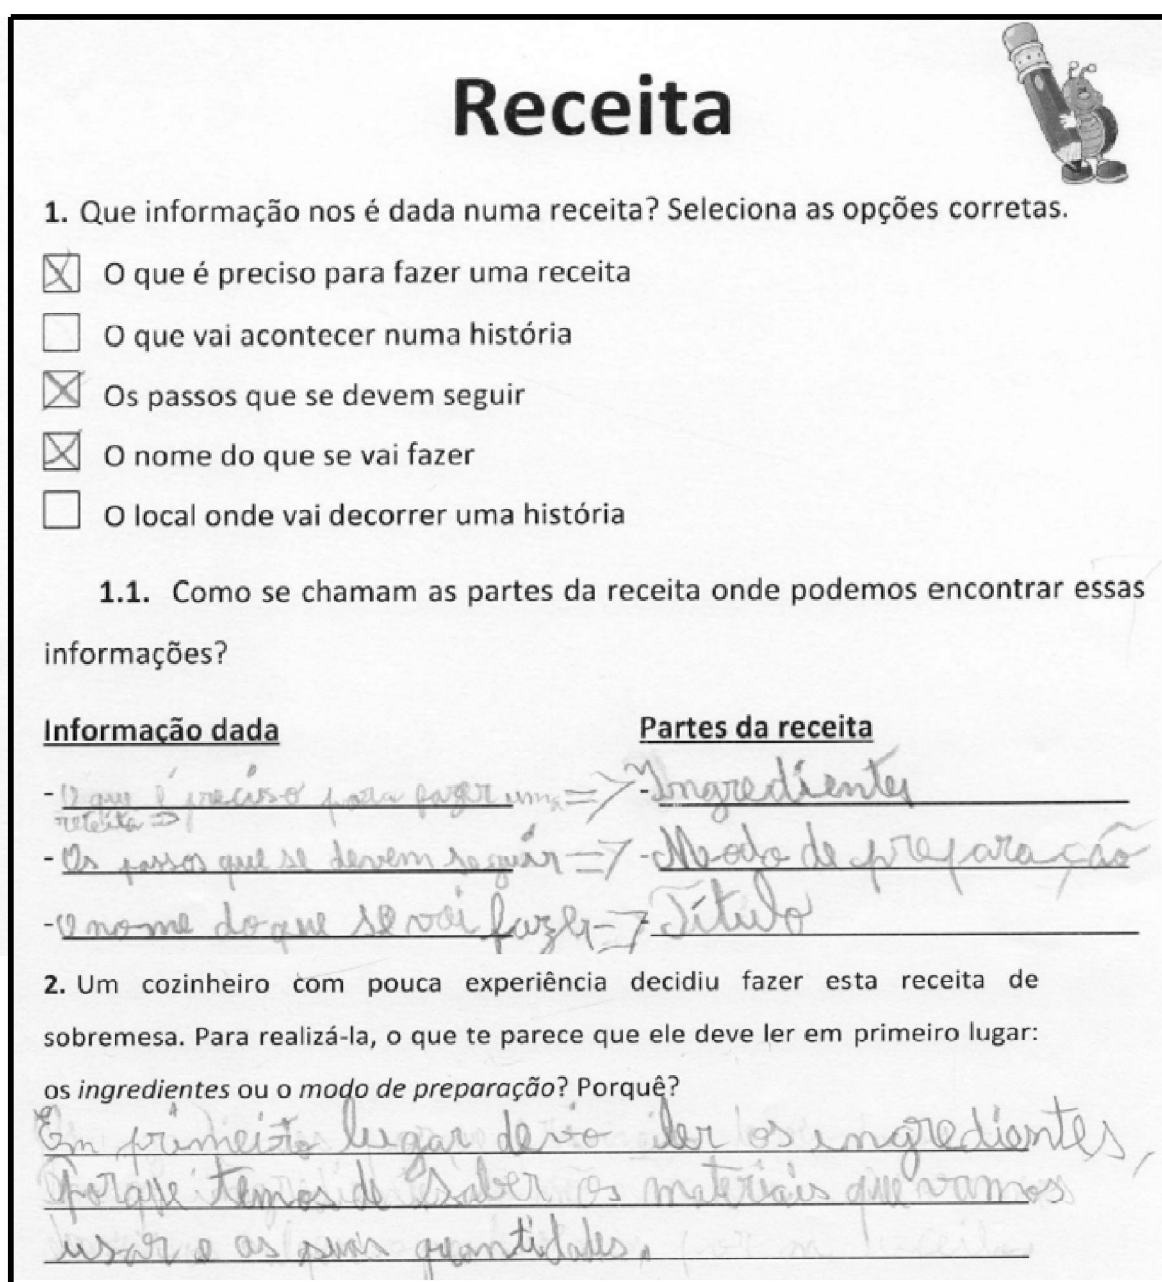 Receita
1. Que informação nos é dada numa receita? Seleciona as opções corretas.
O que é preciso para fazer uma receita
O que vai acontecer numa história
Os passos que se devem seguir
O nome do que se vai fazer
O local onde vai decorrer uma história
1.1. Como se chamam as partes da receita onde podemos encontrar essas
informações?
Informação dada Partes da receita
- O que é preciso para fazer uma => - Ingredientes
receita =>
- Os passos que se devem seguir => - Modo de preparação
- O nome do que se vai fazer => Título
2. Um cozinheiro com pouca experiência decidiu fazer esta receita de
sobremesa. Para realizá-la, o que te parece que ele deve ler em primeiro lugar:
os ingredientes ou o modo de preparação? Porquê?
Em primeiro lugar devo ler os ingredientes,
porque temos de saber os materiais que vamos
usar e as suas quantidades.